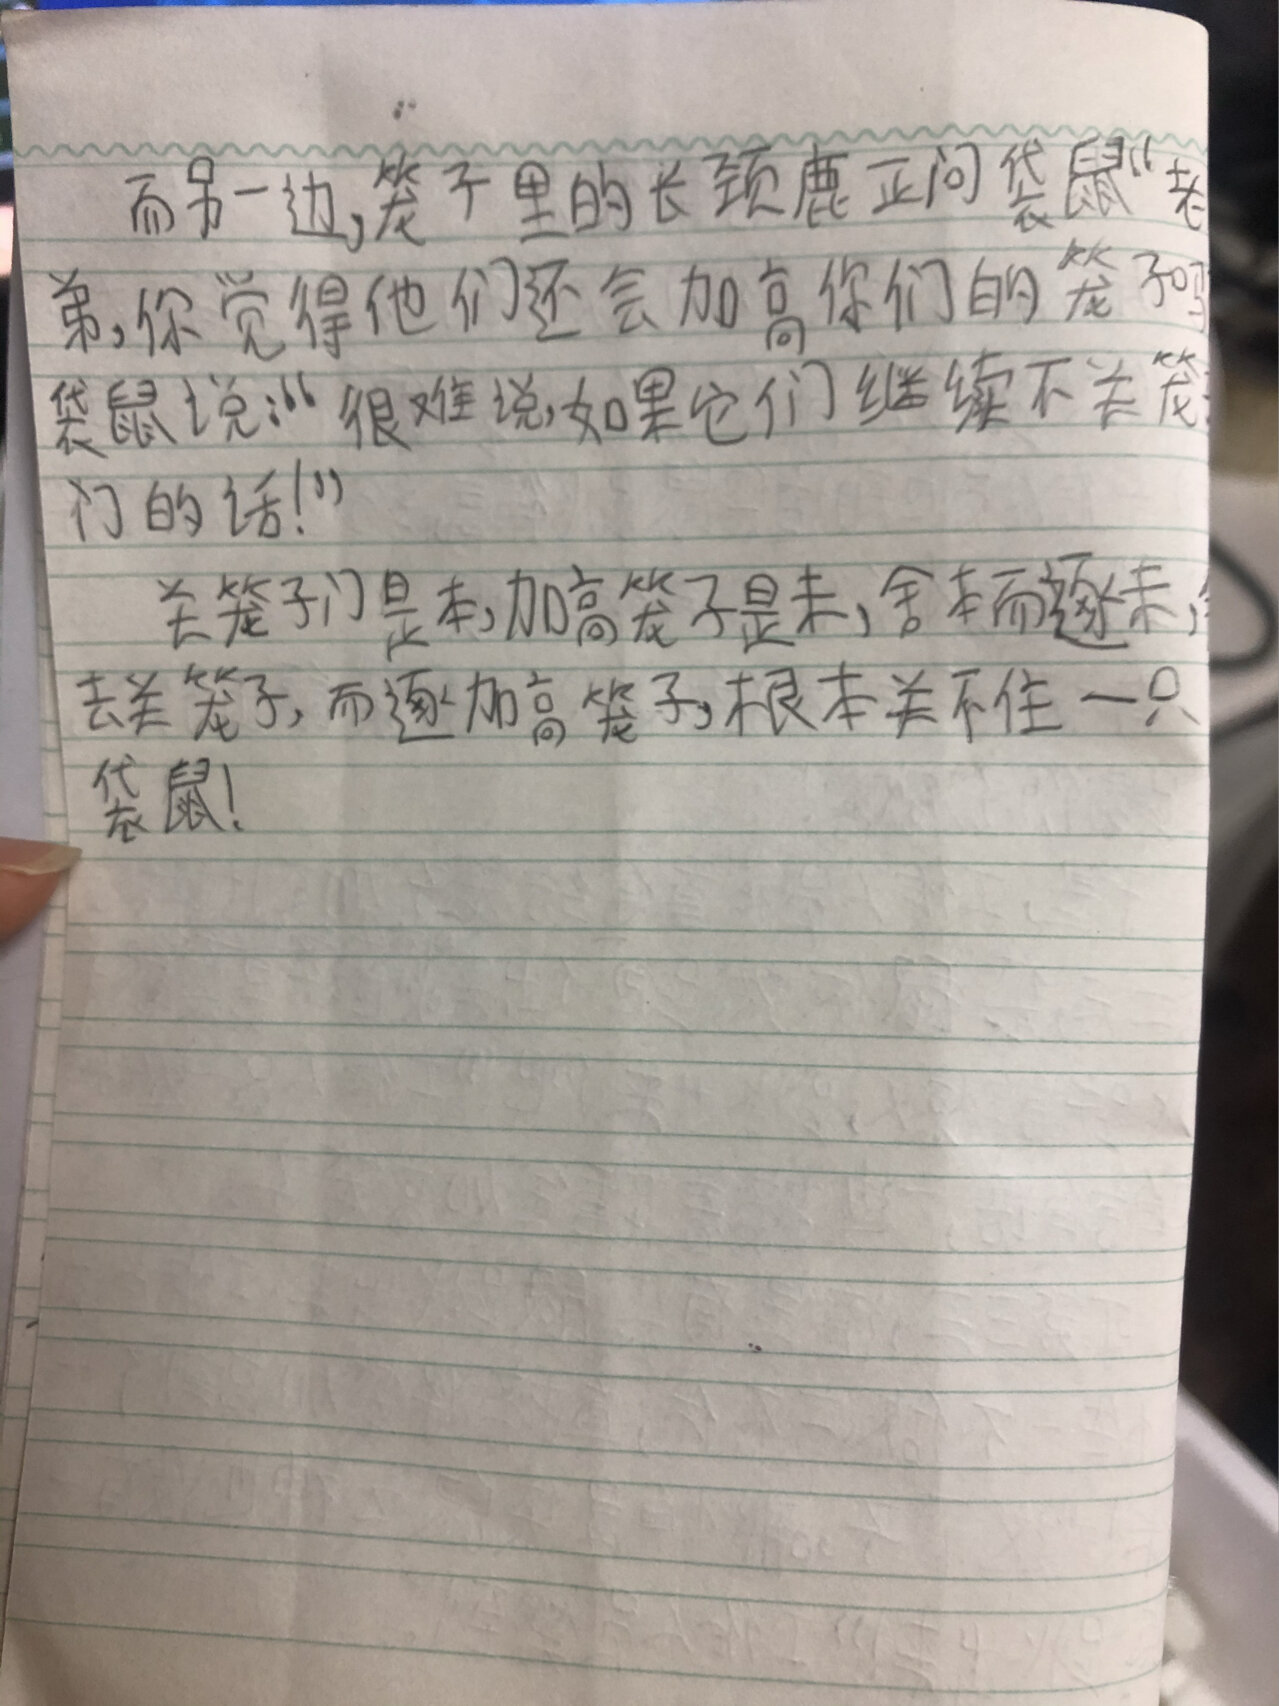 而另一边,笼子里的长颈鹿正问袋鼠“老
弟,你觉得他们还会加高你们的笼子吗
袋鼠说:“很难说,如果它们继续不关笼
门的话!”
关笼子门是本,加高笼子是末,舍本而逐末,
去关笼子,而逐加高笼子,根本关不住一只
袋鼠!